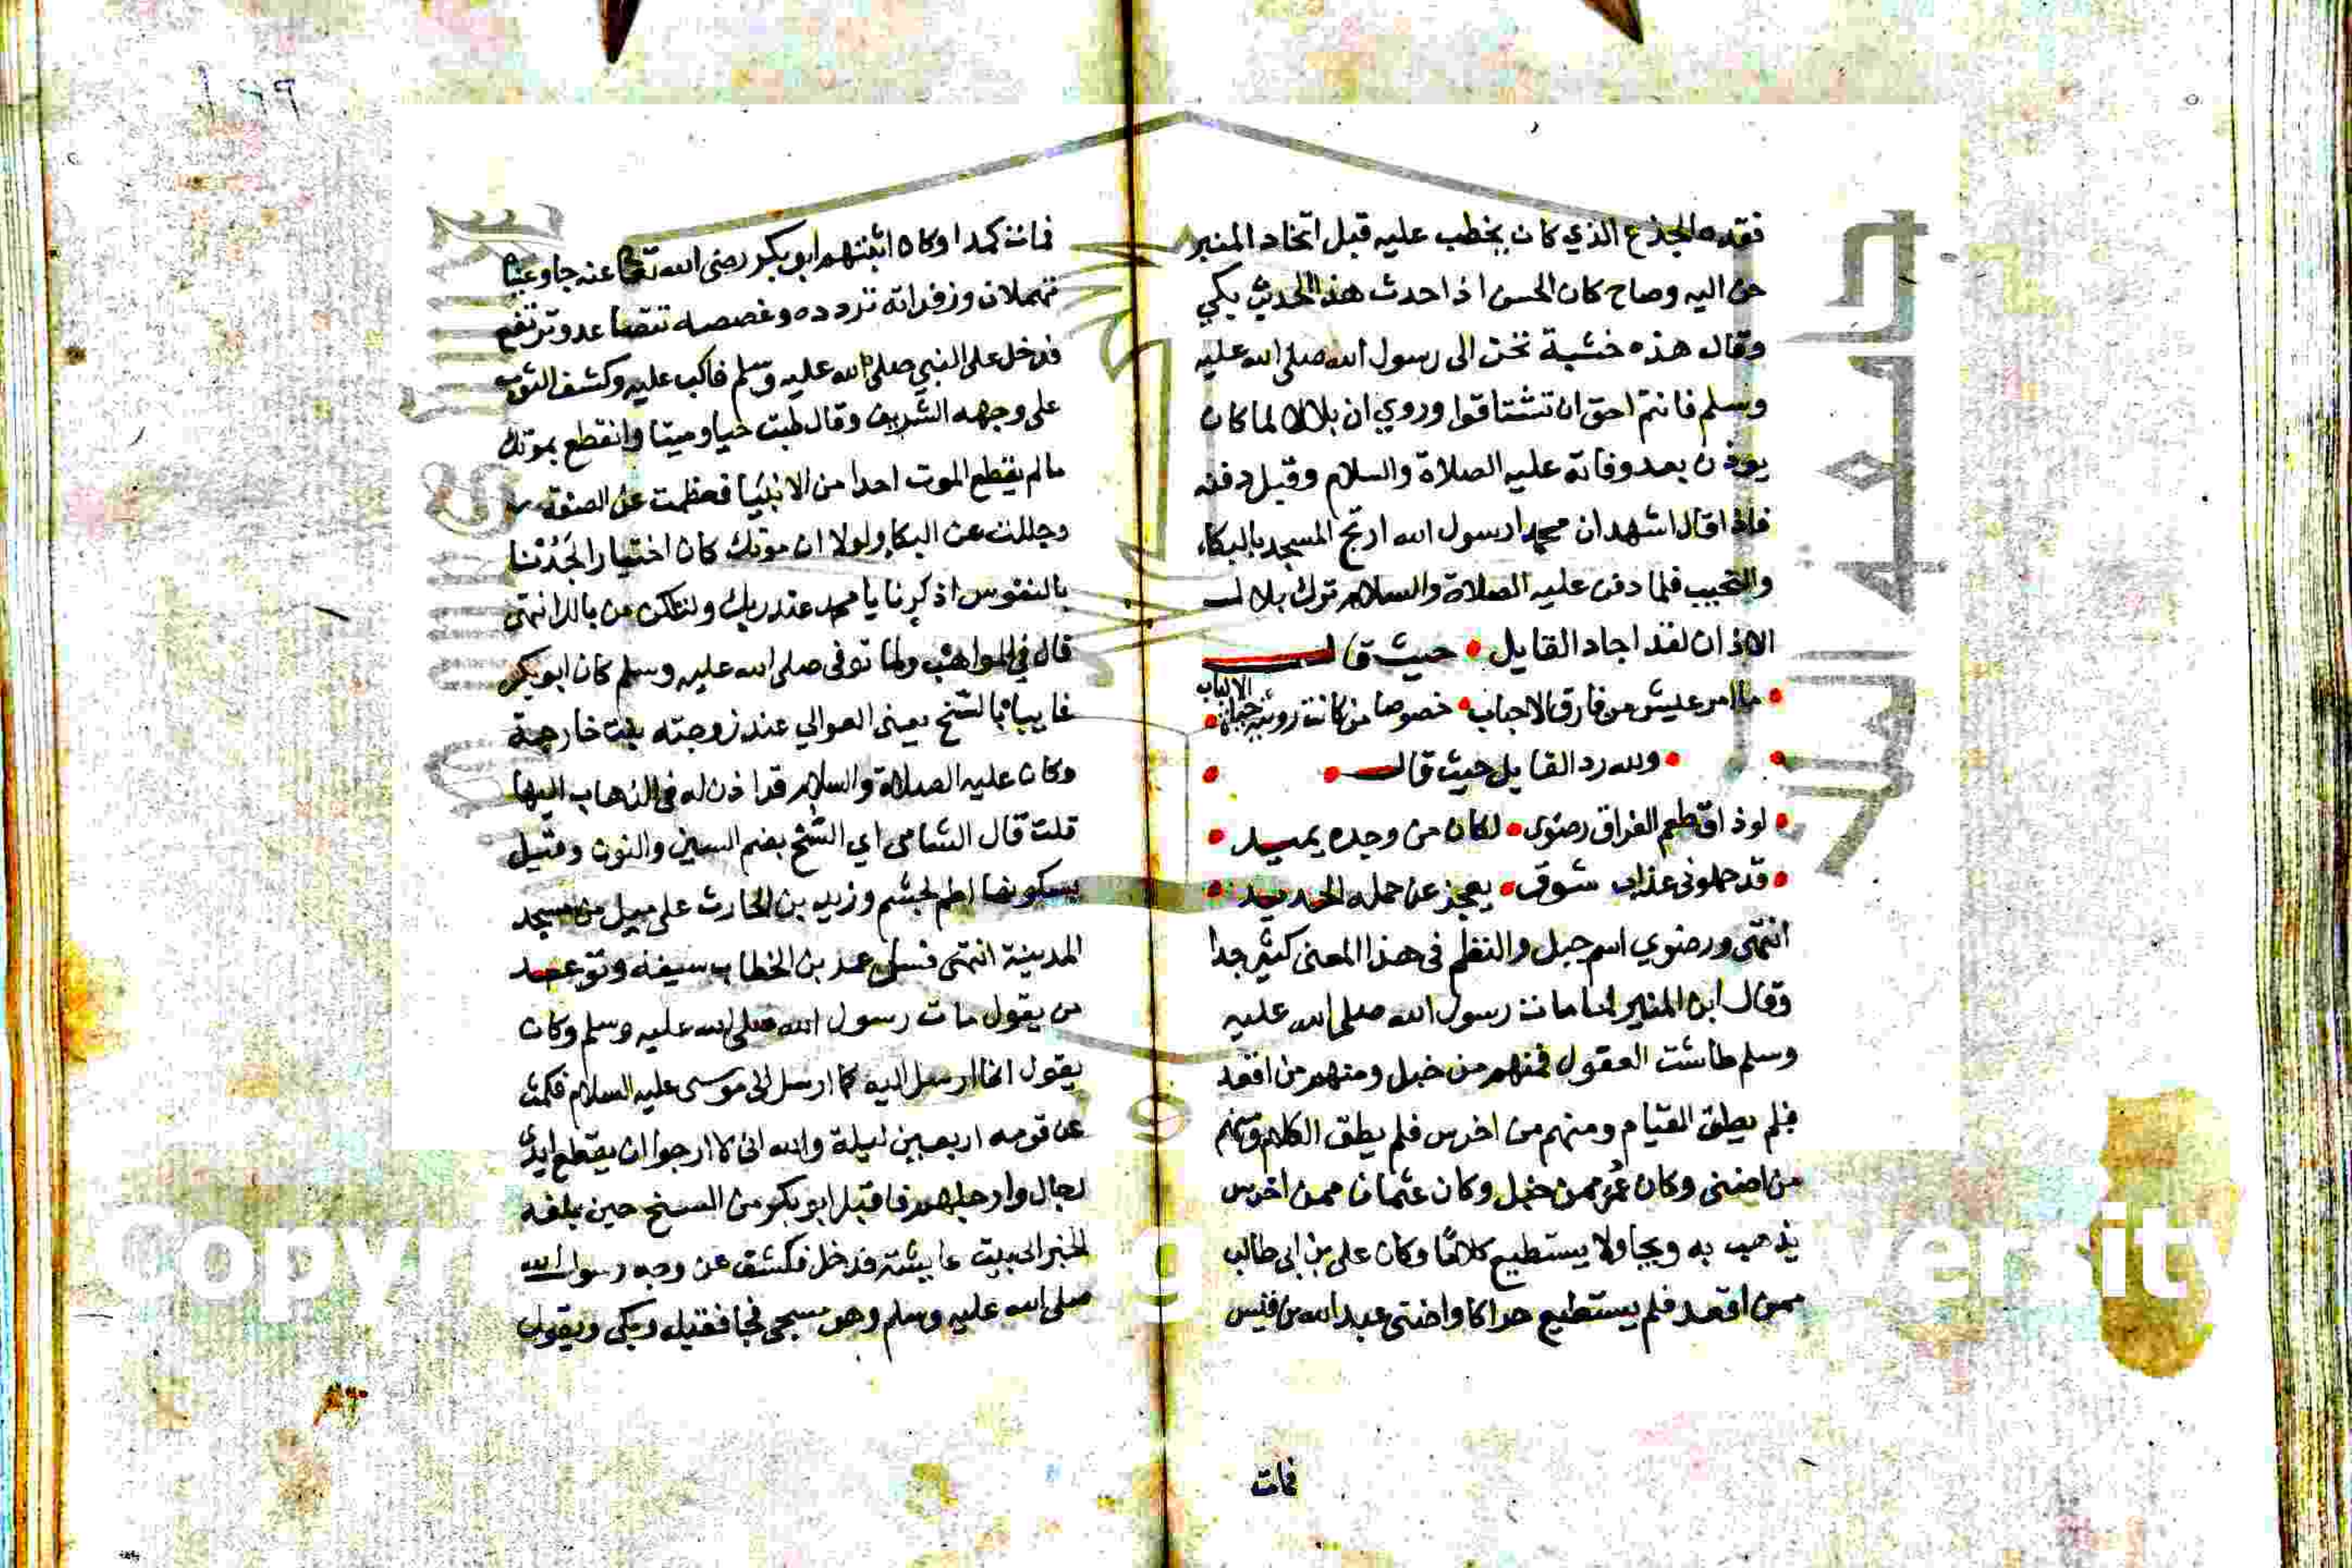 فقده الجذع الذي كان يخطب عليه قبل اتخاد المنبر
حن اليه وصاح كان الحسن اذا حدث هذا الحديث يبكي
وقال هذه خشبة تحن الى رسول الله صلى الله عليه
وسلم فانتم احق ان تشتاقوا وروي ان بلالا لما كان
يوذن بعد وفاته عليه الصلاة والسلام وقبل دفنه
فاذا قال اشهد ان محمدا رسول الله ارتج المسجد بالبكاء
والنحيب فلما دفن عليه الصلاة والسلام ترك بلال
الاذان لقد اجاد القايل حيث قال
ما امر عيش من فارق الاحباب خصوصا من كانت رويته حياة الالباب
ولله در القايل حيث قال
لو ذاق طعم الفراق رضوى لكان من وجده يميد
قد حملوني عذاب شوق يعجز عن حمله الحديد
انتهى ورضوي اسم جبل والنظم في هذا المعنى كثير جدا
وقال ابن المنير لما مات رسول الله صلى الله عليه
وسلم طاشت العقول فمنهم من خبل ومنهم من اقعد
فلم يطق القيام ومنهم من اخرس فلم يطق الكلام ومنهم
من اضنى وكان عمر ممن خبل وكان عثمان ممن اخرس
يذهب به ويجا ولا يستطيع كلاما وكان علي بن ابي طالب
ممن اقعد فلم يستطيع حراكا واضنى عبد الله بن
فمات
١٩٩
فمات كمدا وكان اثبتهم ابو بكر رضى الله تعالى عنه جا وعيناه
تهملان وزفراته تردده وغصصه تتصاعد وترتفع
فدخل على النبي صلى الله عليه وسلم فاكب عليه وكشف الثوب
على وجهه الشريف وقال طبت حيا وميتا وانقطع بموتك
مالم يقطع الموت احدا من الانبيا فعظمت عن الصفة
وجللت عن البكا ولولا ان موتك كان اختيارا لجدنا
بالنفوس اذكرنا يا محمد عند ربك ولنكن من بالك انتهى
قال في المواهب ولما توفى صلى الله عليه وسلم كان ابو بكر
غايبا بالسنح يعني العوالي عند زوجته بنت خارجة
وكان عليه الصلاة والسلام قد اذن له في الذهاب اليها
قلت قال الشامى اي السنح بضم السين والنون وقيل
بسكونها اطم لجشم وزيد بن الحارث على ميل من مسجد
المدينة انتهى فسل عمر بن الخطاب سيفه وتوعد
من يقول مات رسول الله صلى الله عليه وسلم وكان
يقول انما ارسل اليه كما ارسل الى موسى عليه السلام فمكث
عن قومه اربعين ليلة والله اني لارجوا ان يقطع ايدي
رجال وارجلهم فاقبل ابو بكر من السنح حين بلغه
الخبر الى بيت عايشة فدخل فكشف عن وجه رسول الله
صلى الله عليه وسلم وهو مسجى فجا فقبله وبكى ويقول